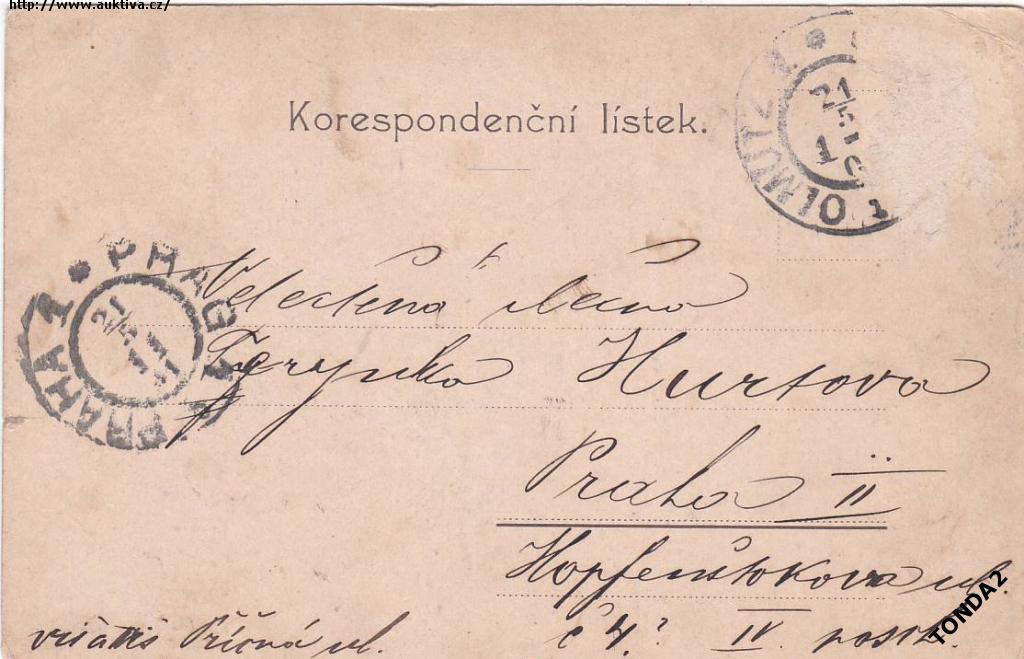 http://www.auktiva.cz/
Korespondenční lístek.
OLMÜTZ 1
21/5
PRAHA 1 * PRAGA
21/5
Velectěná slečna
Hurtova
Praha II
Hopfenštokova ul.
č 4? IV
Příčná ul.
TONDA2